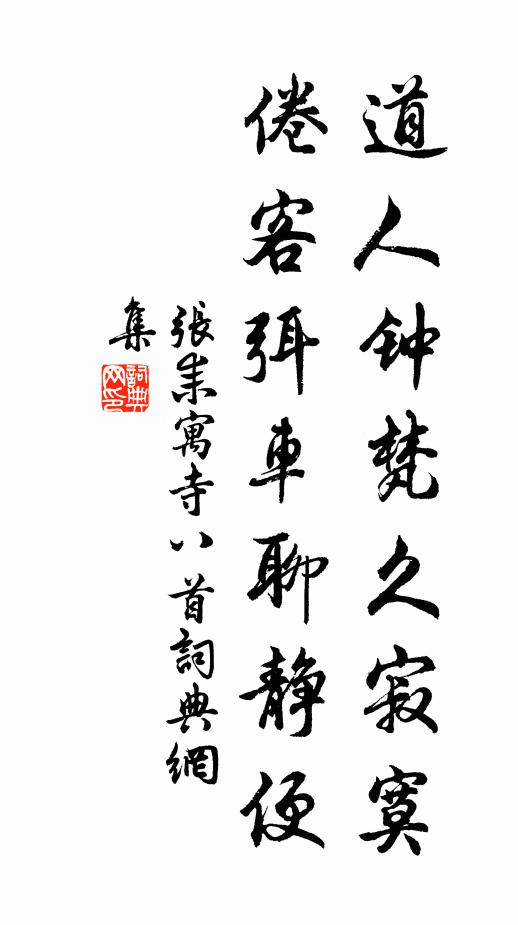 道人钟梵久寂寞
倦客弭車聊静便
張耒寓寺八首詞典網
集
詞典
网印